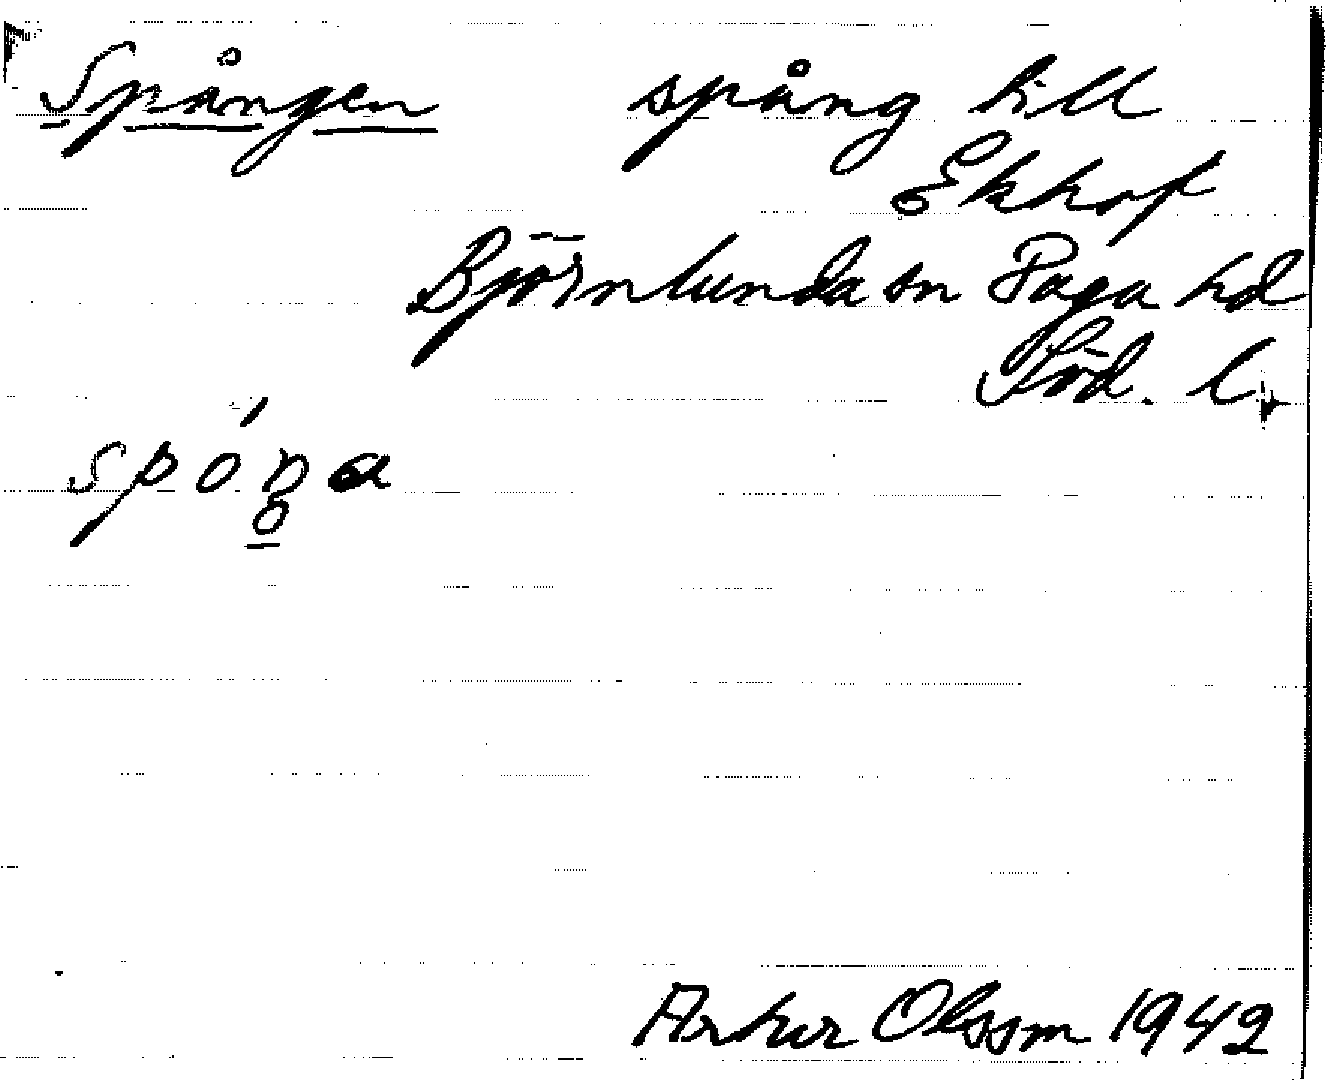 Spången spång till
Ekhof
Björnlunda sn Daga hd
Söd. l.
Artur Olsson 1942